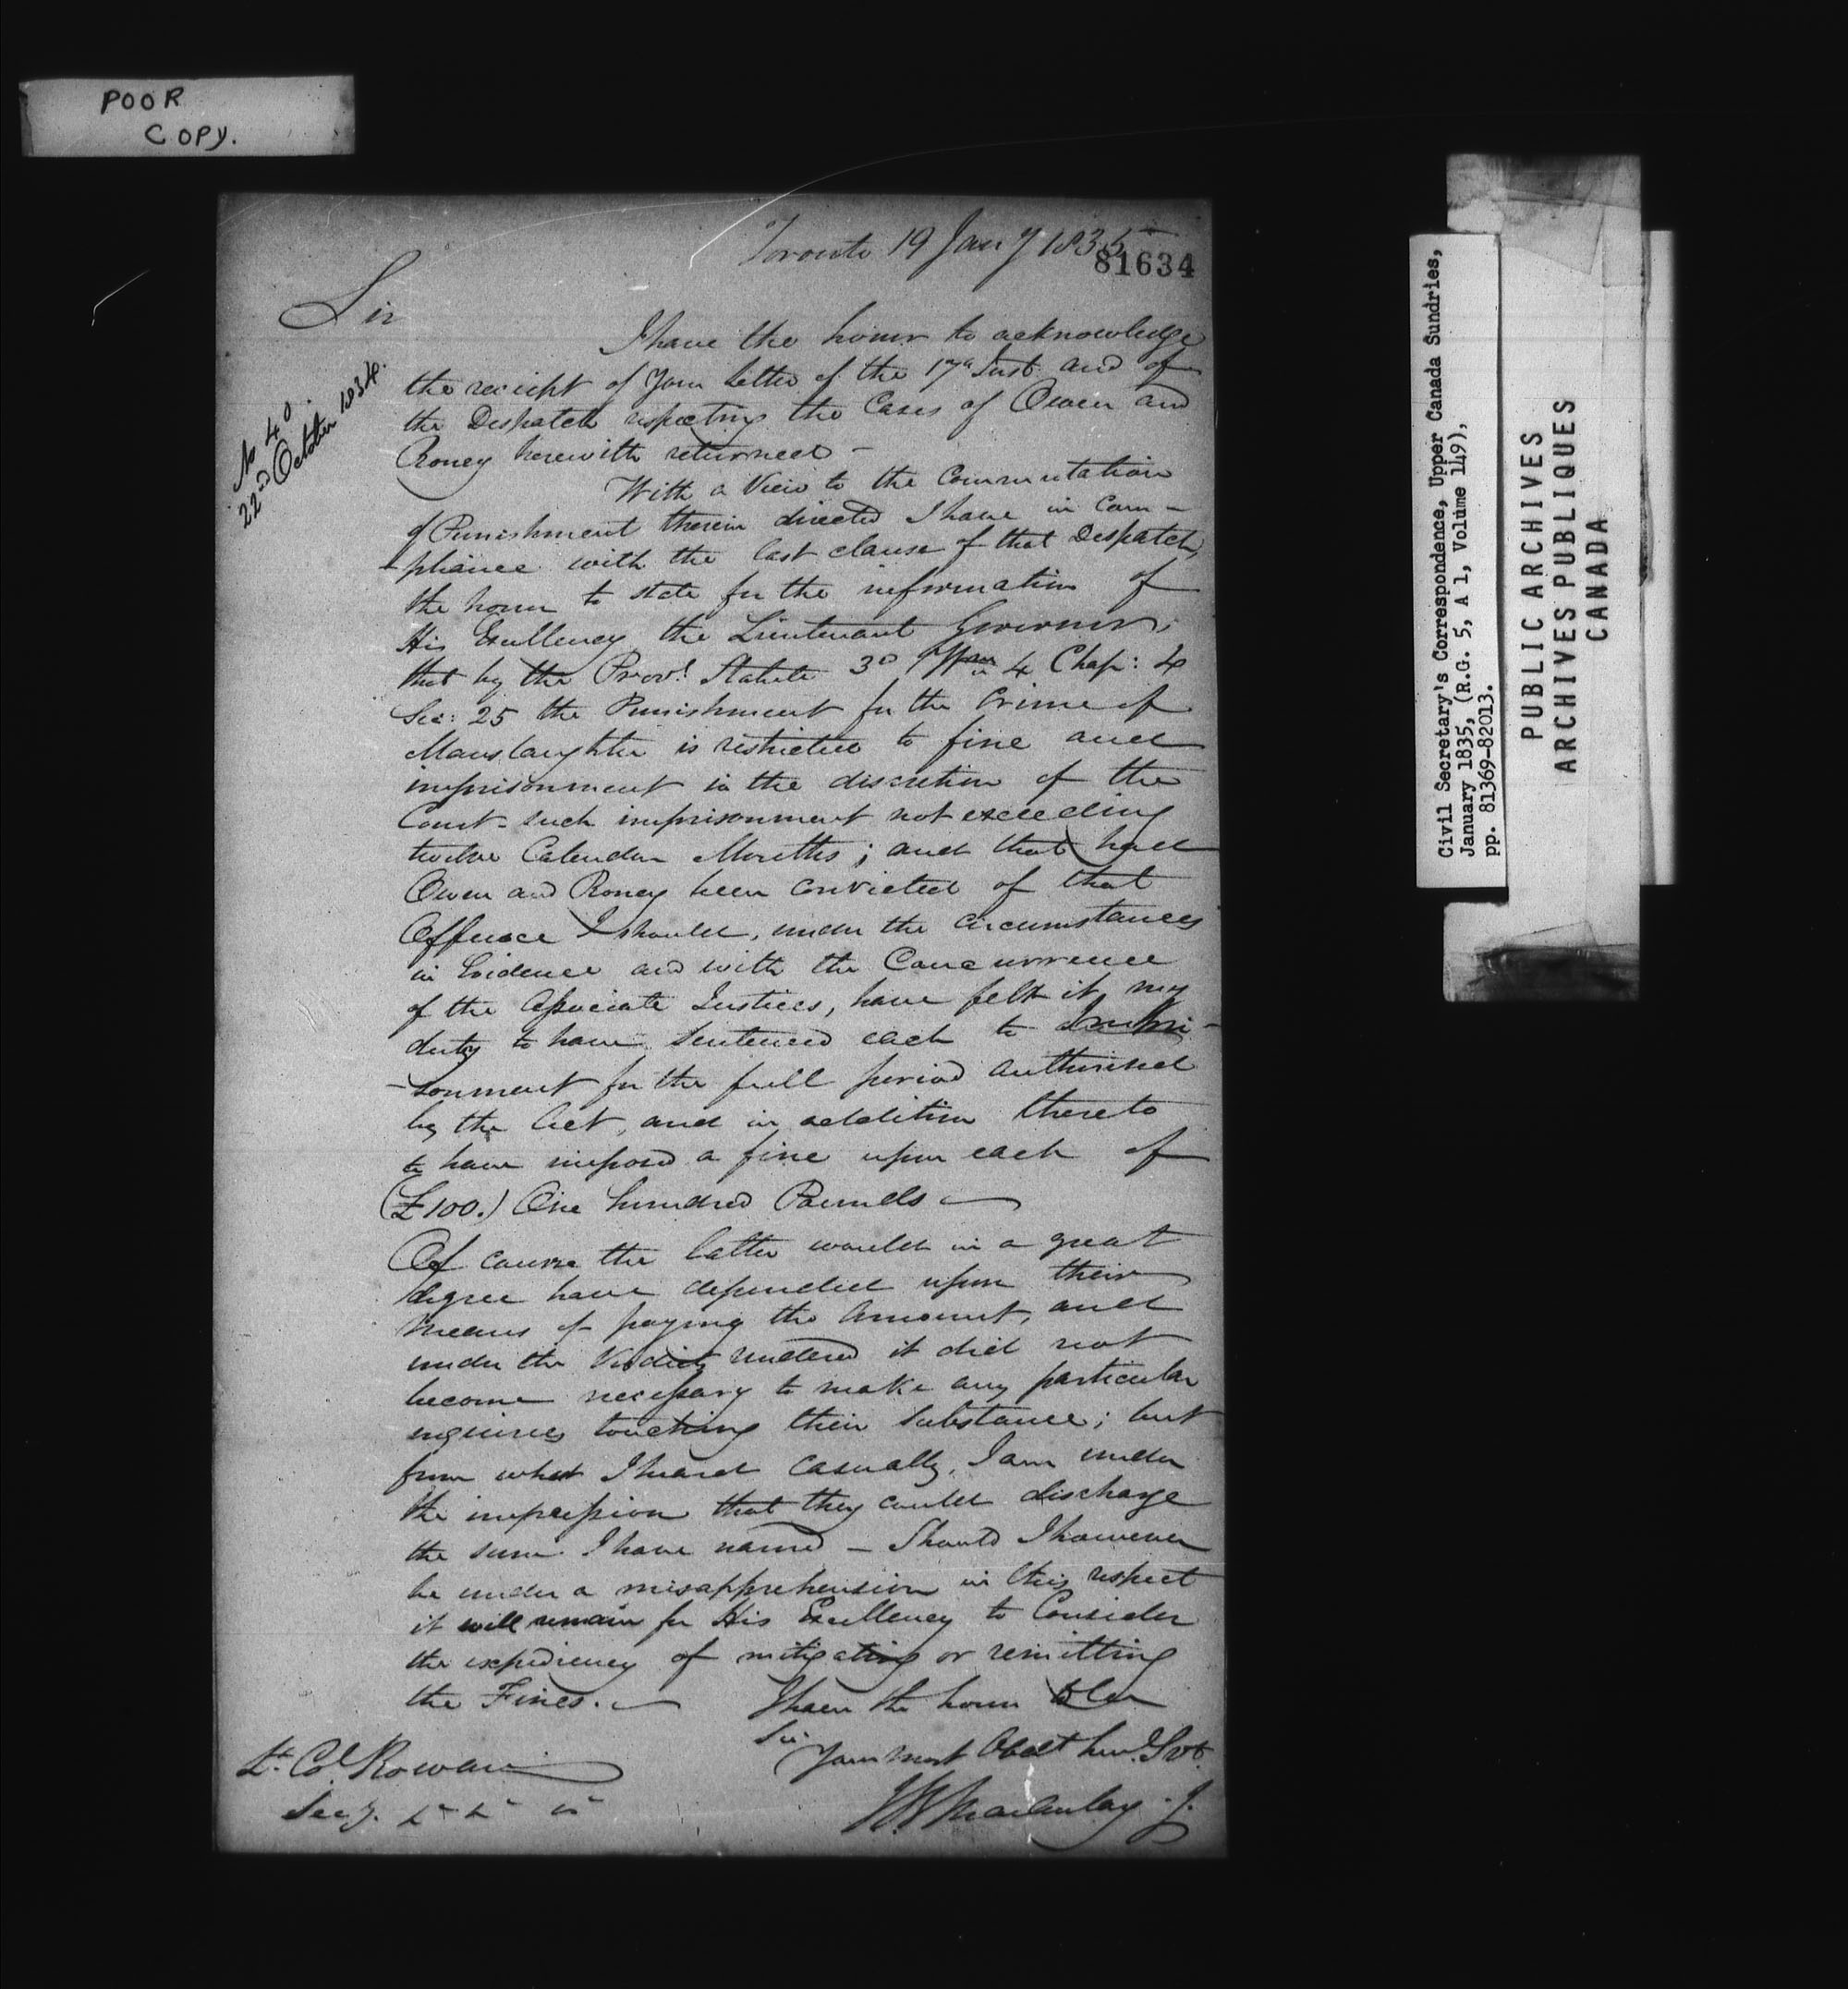 POOR
COPY.
Toronto 19 Jany 1835
81634
Sir
No 40.
22nd October 1834.
I have the honor to acknowledge
the receipt of Your Letter of the 17th Inst. and of
the Despatch respecting the Cases of Owen and
Roney herewith returned –
With a View to the Commutation
of Punishment therein directed I have in Com-
-pliance with the last clause of that Despatch,
the honor to state for the information of
His Excellency the Lieutenant Governor,
that by the Provl. Statute 3d Wm 4 Chap: 4
Sec: 25 the Punishment for the Crime of
Manslaughter is restricted to fine and
imprisonment in the discretion of the
Court – such imprisonment not exceeding
twelve Calendar Months; and that had
Owen and Roney been convicted of that
Offence I should, under the circumstances
in Evidence and with the Concurrence
of the Associate Justices, have felt it my
duty to have sentenced each to Impri-
-sonment for the full period authorised
by the Act, and in addition thereto
to have imposed a fine upon each of
(£100.) One hundred Pounds –
Of course the latter would in a great
degree have depended upon their
means of paying the Amount, and
under the Verdict rendered it did not
become necessary to make any particular
inquiries touching their substance; but
from what I heard casually, I am under
the impression that they could discharge
the sum I have named – Should I however
be under a misapprehension in this respect
it will remain for His Excellency to Consider
the expediency of mitigating or remitting
the Fines. –
I have the honor to be
Sir
Your most Obedt huml Svt
J B Macaulay. J.
Lt. Col Rowan
Secy.
Civil Secretary's Correspondence, Upper Canada Sundries,
January 1835, (R.G. 5, A 1, Volume 149),
pp. 81369-82013.
PUBLIC ARCHIVES
ARCHIVES PUBLIQUES
CANADA